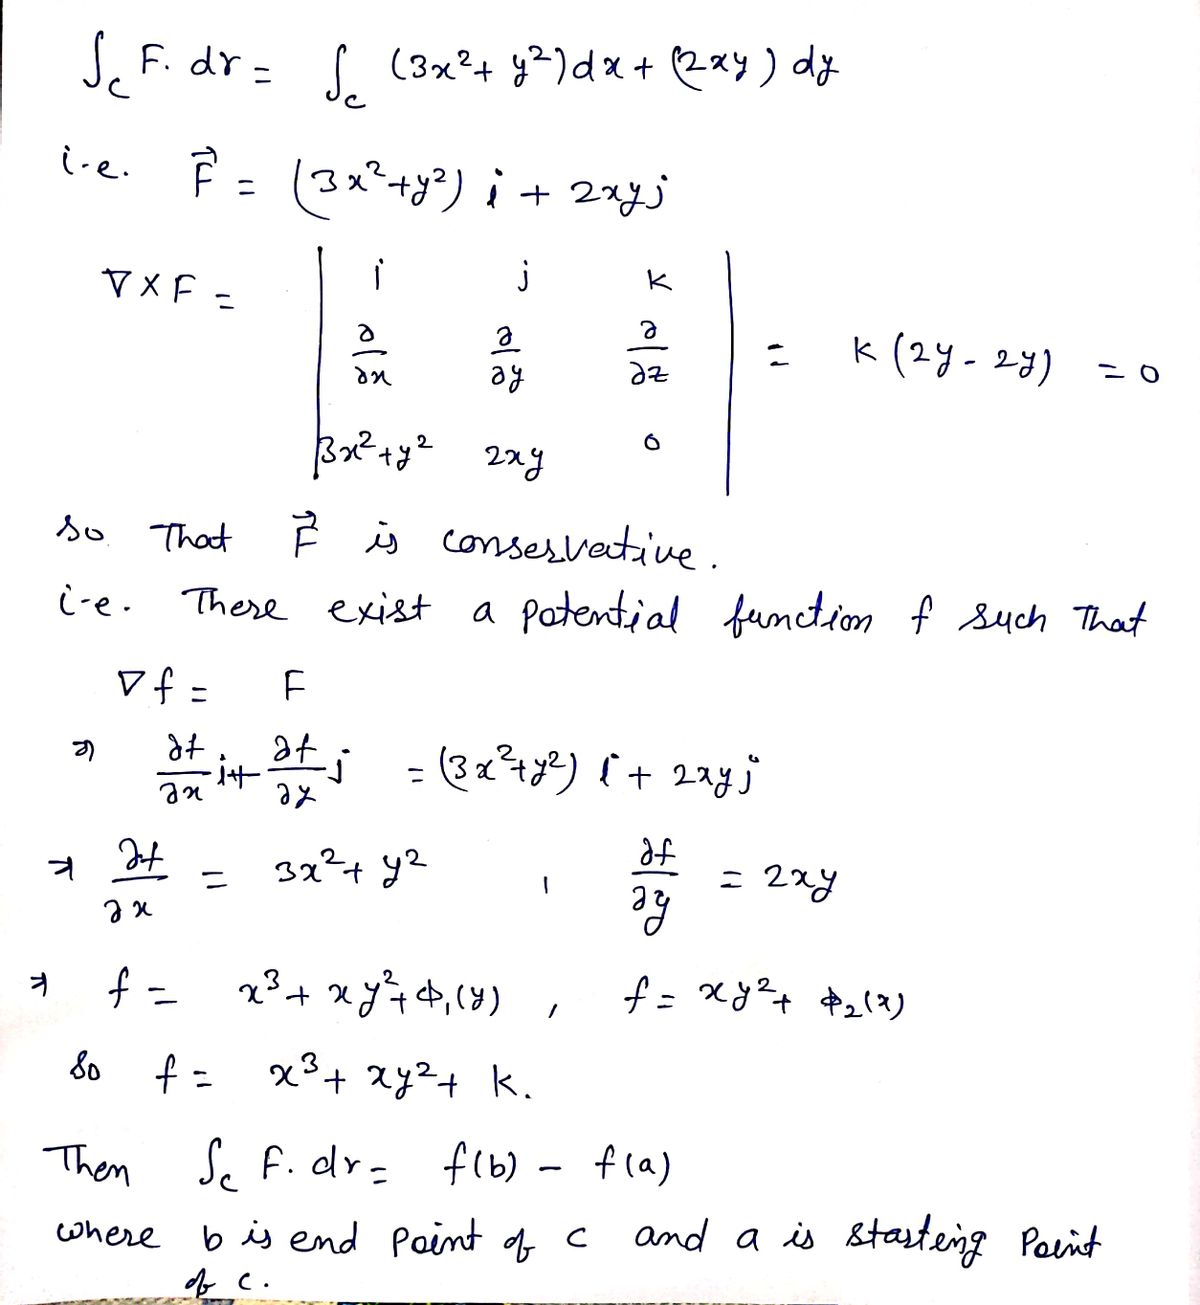 ∫_c F. dr = ∫_c (3x²+ y²)dx + (2xy) dy
i-e. F⃗ = (3x²+y²) i + 2xyj
∇ X F = | i j k |
| ∂/∂x ∂/∂y ∂/∂z | = k (2y - 2y) = 0
| 3x²+y² 2xy 0 |
so That F⃗ is conservative.
i-e. There exist a potential function f such That
∇f = F
⇒ ∂f/∂x i + ∂f/∂y j = (3x²+y²) i + 2xyj
⇒ ∂f/∂x = 3x²+ y² , ∂f/∂y = 2xy
⇒ f = x³ + xy² + ϕ₁(y) , f = xy² + ϕ₂(x)
So f = x³ + xy² + k.
Then ∫_c F. dr = f(b) – f(a)
where b is end point of c and a is starteing Point
of c.